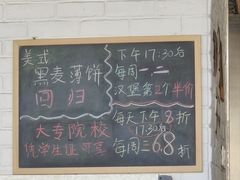 美式
黑麦薄饼
回归
大专院校
凭学生证可享
下午17:30后
每周一.二
汉堡第2个半价
每天下午8折
17:30后
每周三6.8折